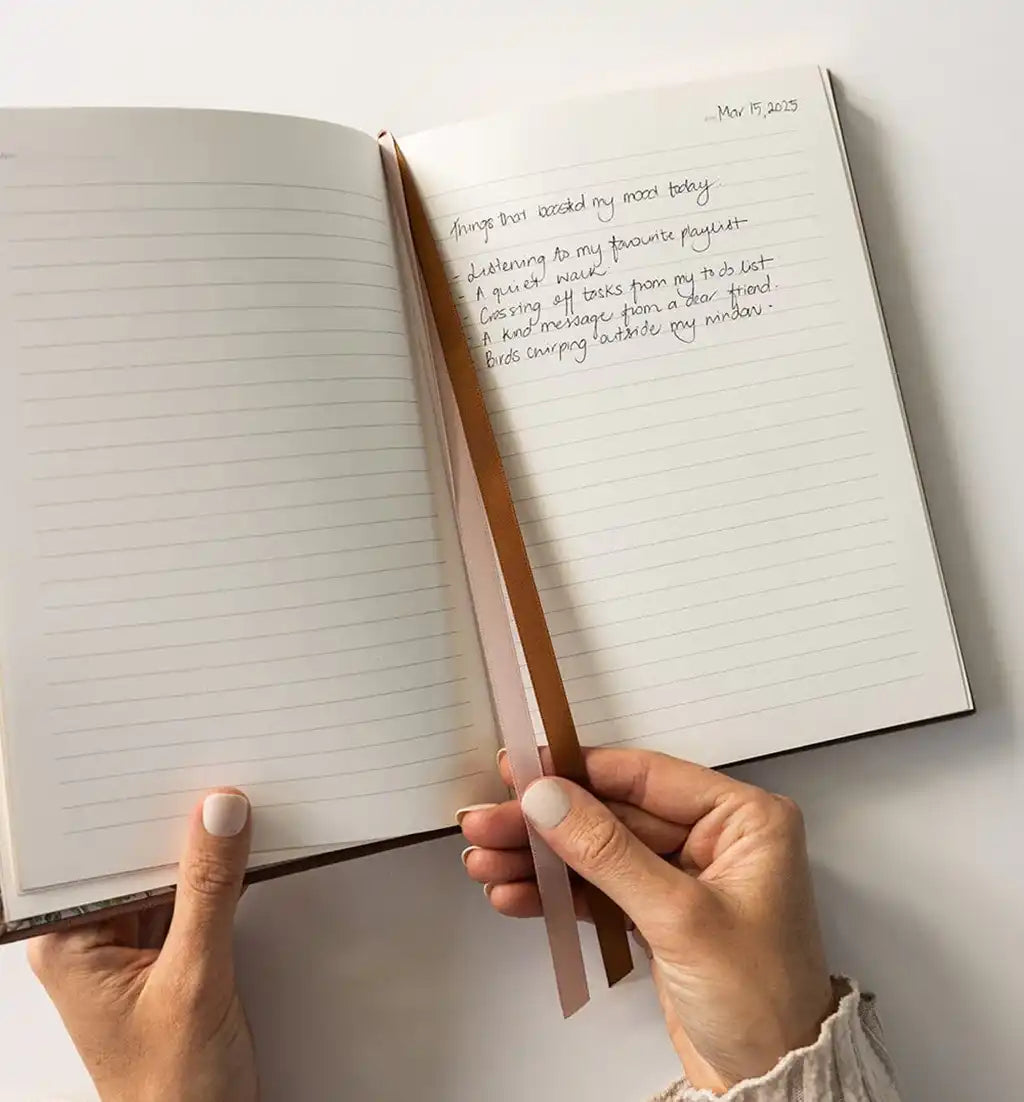 Mar 15, 2025
Things that boosted my mood today.
- Listening to my favourite playlist
- A quiet walk.
- Crossing off tasks from my to do list
- A kind message from a dear friend.
Birds chirping outside my window.